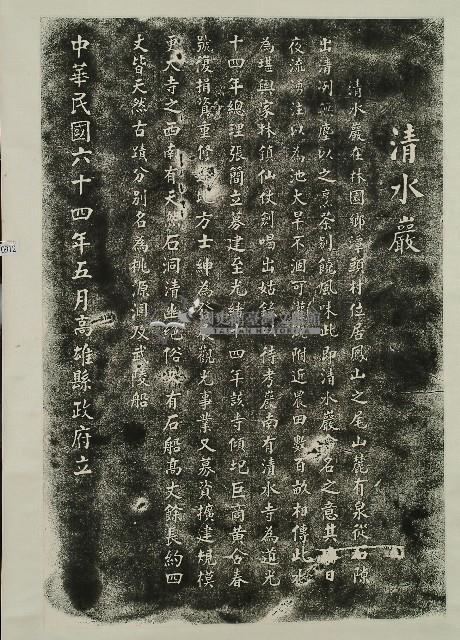 清水巖
清水巖在林園鄉潭頭村位居鳳山之尾山麓有泉從石隙
出清冽無塵以之烹茶別饒風味此即清水巖命名之意其 日
夜流湧注以為池大旱不涸可灌溉附近農田數百畝相傳此水
為堪輿家林鎮仙仗劍喝出姑 待考巖南有清水寺為道光
十四年總理張簡立募建至光緒 四年該寺傾圮巨商黃合春
號復捐資重修 地方士紳為 展觀光事業又募資擴建規模
更大寺之西南有天然石洞清幽絕俗 有石船高丈餘長約四
丈皆天然古蹟分別名為桃源洞及武陵船
中華民國六十四年五月高雄縣政府立
國史館臺灣文獻館
TAIWAN HISTORICA